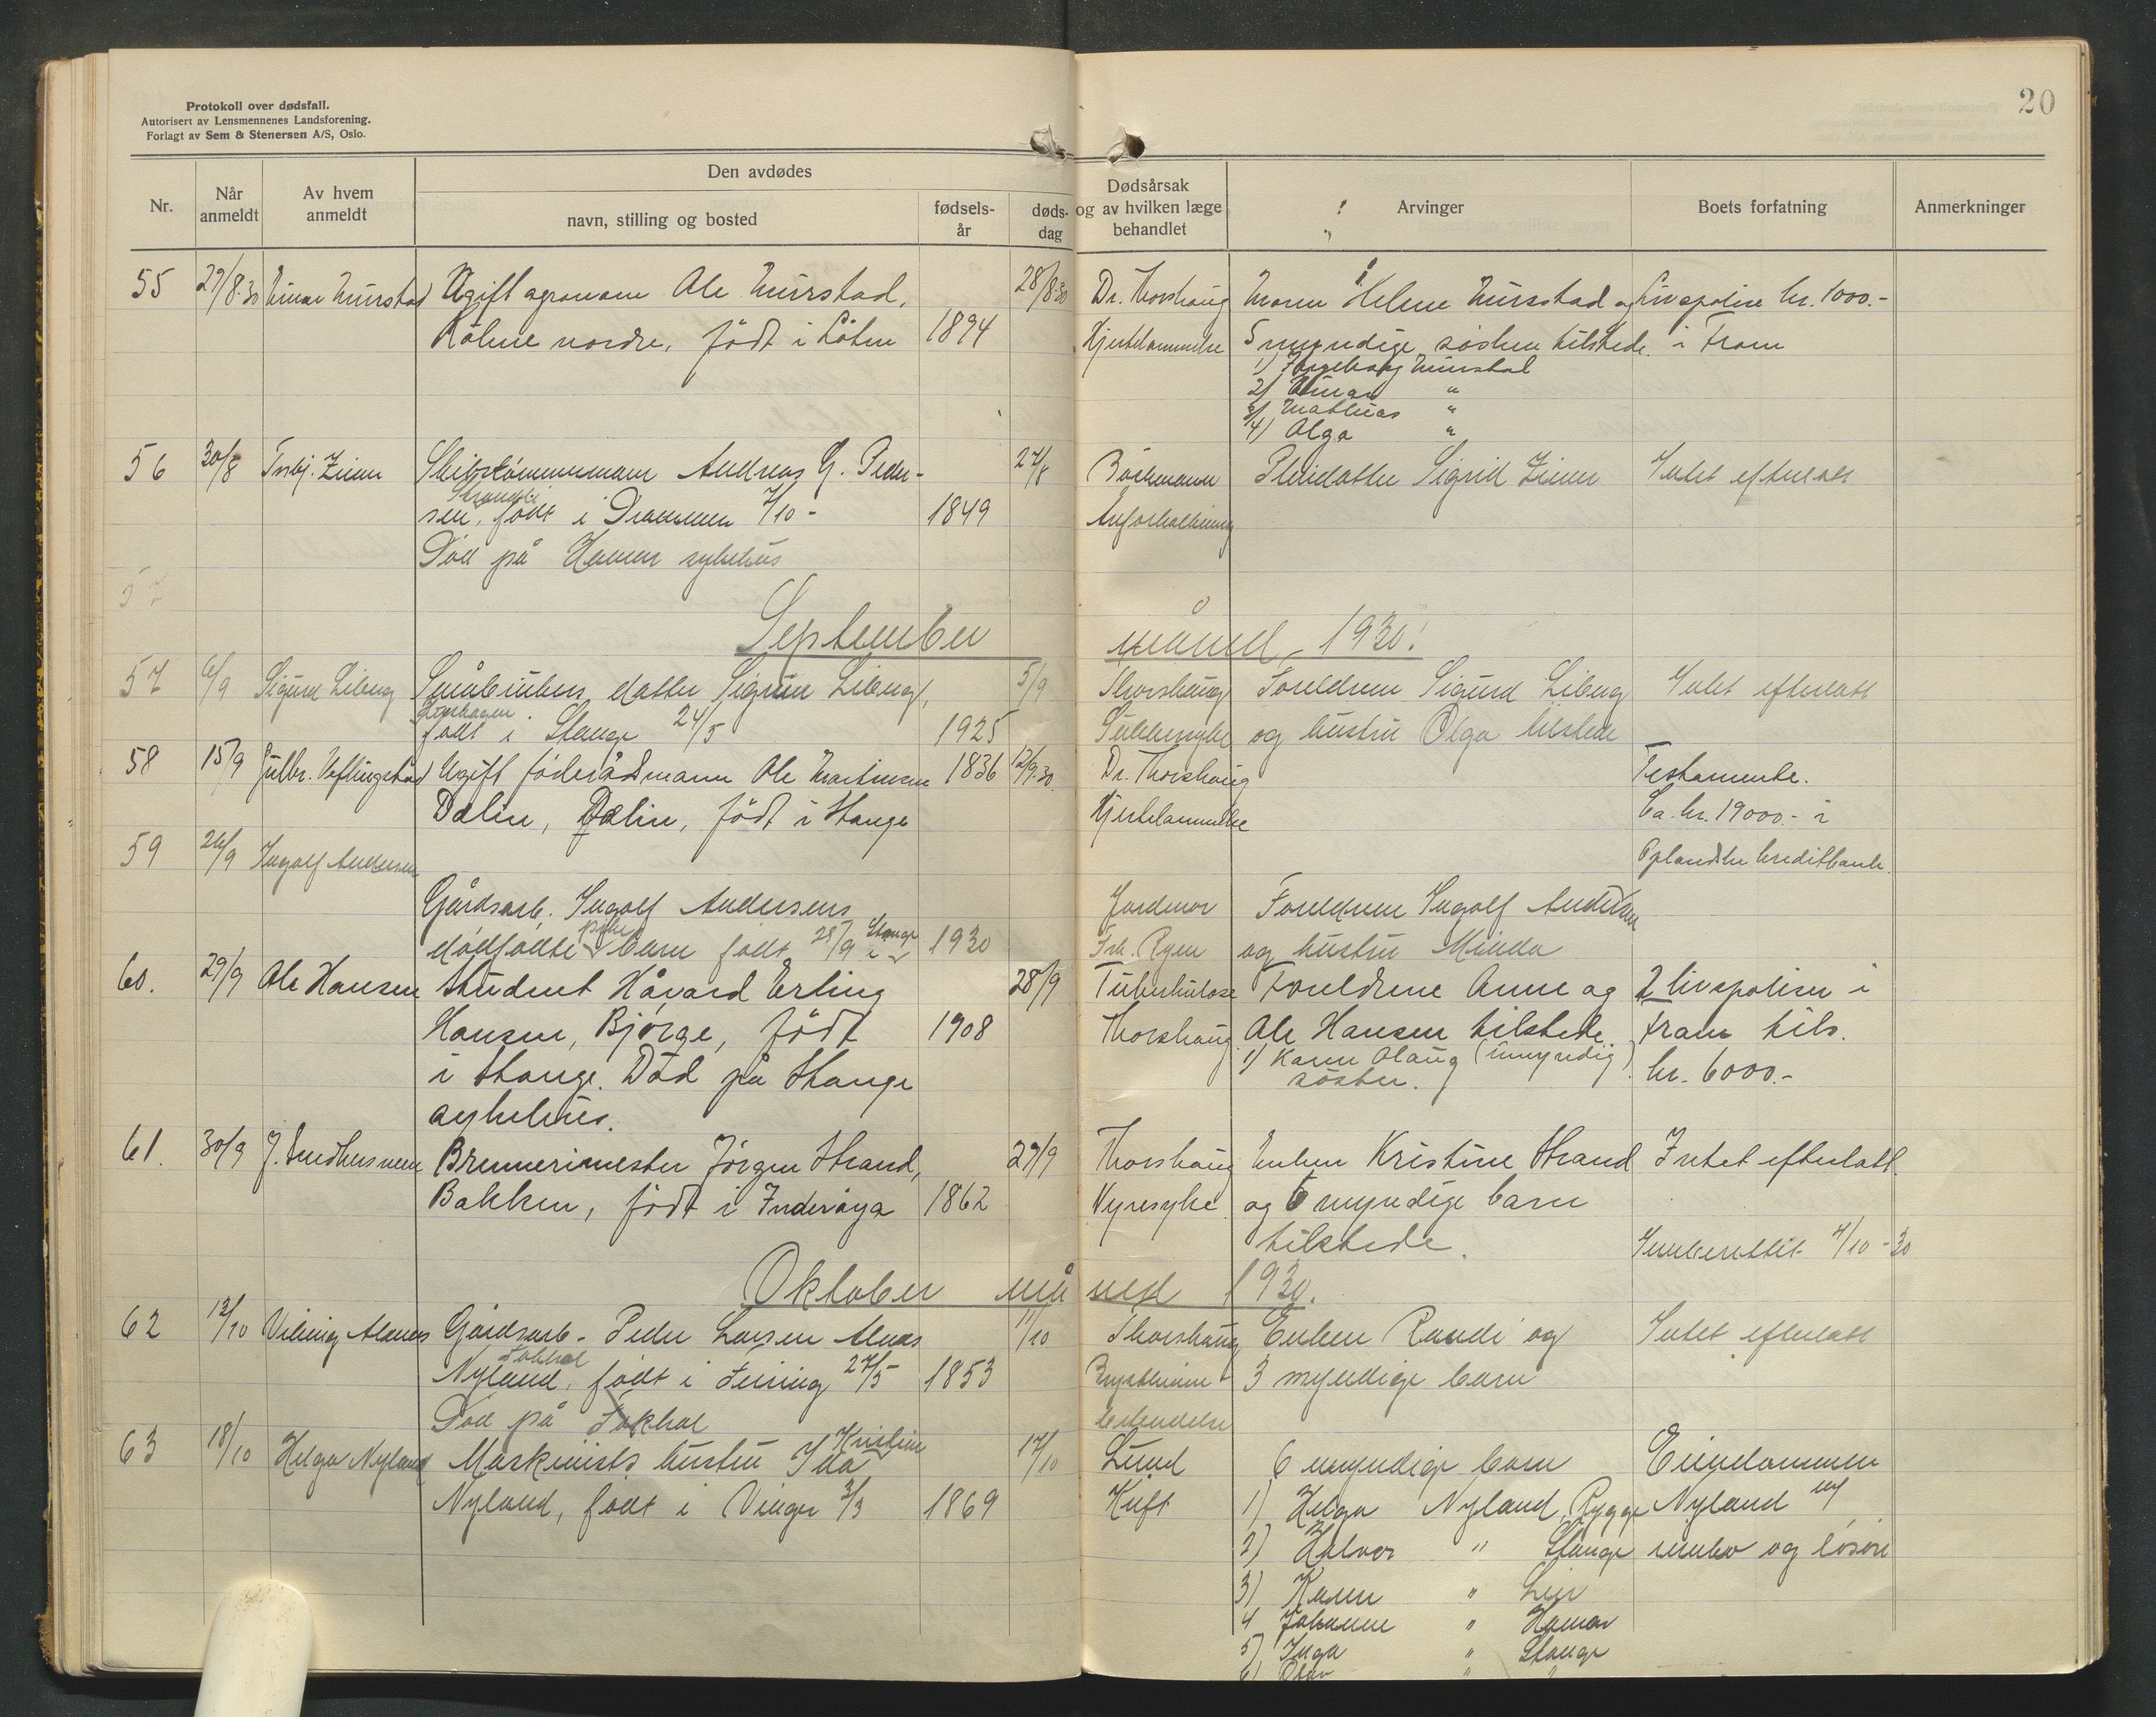 Protokoll over dødsfall.
Autorisert av Lensmennenes Landsforening.
Forlagt av Sem & Stenersen A/S, Oslo.
20
Nr.
Når anmeldt
Av hvem anmeldt
Den avdødes
navn, stilling og bosted
fødsels-år
døds-dag
Dødsårsak og av hvilken læge behandlet
Arvinger
Boets forfatning
Anmerkninger
55 29/8.30 Ugift agronom Ole 28/8.30 Dr. Thorshaug Moren Helene og Livspolise kr. 1000.-
nordre, födt i Löten 1894 Hjertelammelse 5 myndige søsken tilstede. i Fram
1) Ingeborg
2) Einar "
3) Mathias "
4) Olga "
56 30/8 Torbj. Andreas G. Peder- 27/8 Pleiedatter Sigrid Intet efterlatt
sen, födt i Drammen 7/10 - 1849 Åreforkalkning
Död på Hamar sykehus
57
September måned 1930.
57 6/9 Sigurd Liberg Småbrukers datter Sigrun Liberg, 5/9 Thorshaug Foreldrene Sigurd Liberg Intet efterlatt
födt i Stange 24/5 1925 Sukkersyke og hustru Olga tilstede
58 15/9 Gulbr. Veflingstad Ugift føderådsmann Ole Martinsen 1836 12/9.30. Dr. Thorshaug Testamente.
Dælin, Dælin, födt i Stange Hjertelammelse Ca. kr. 19000.- i
59 26/9 Ingolf Andersen Oplandske Kreditbank.
Gårdsarb. Ingolf Andersens Jordmor Foreldrene Ingolf Andersen
dødfødte pike barn født 28/9 i Stange 1930 Frk. Ryen og hustru Minda
60. 29/9 Ole Hansen Student Håvard Erling 28/9 Tuberkulose Foreldrene Anne og 2 livspoliser i
Hansen, Bjørge, födt 1908 Thorshaug Ole Hansen tilstede. Fram tils.
i Stange. Död på Stange 1) Karen Olaug (umyndig) søster. kr. 6000.-
sykehus.
61. 30/9 Brennerimester Jörgen Strand, 29/9 Thorshaug Enken Kristine Strand Intet efterlatt.
Bakken, födt i Inderöya 1862 Nyresyke og 6 myndige barn
tilstede. Innberettet 4/10 - 30
Oktober måned 1930.
62 12/10 Viking Alnæs Gårdsarb. Peder Larsen Alnæs 11/10 Thorshaug Enken Randi og Intet efterlatt
Nyland, Tokhol født i Feiring 27/5 1853 3 myndige barn
Död på Tokhol
63 18/10 Helga Nyland Maskinists hustru Ida Kristine 17/10 Lund 6 myndige barn Eiendommen
Nyland, født i Vinger 3/3 1869 Kreft 1) Helga Nyland, Rygge Nyland m/
2) Halvor " Stange innbo og løsøre
3) Karen " Lier
4 Johanne " Hamar
5) Inga " Stange
6) Olav " "